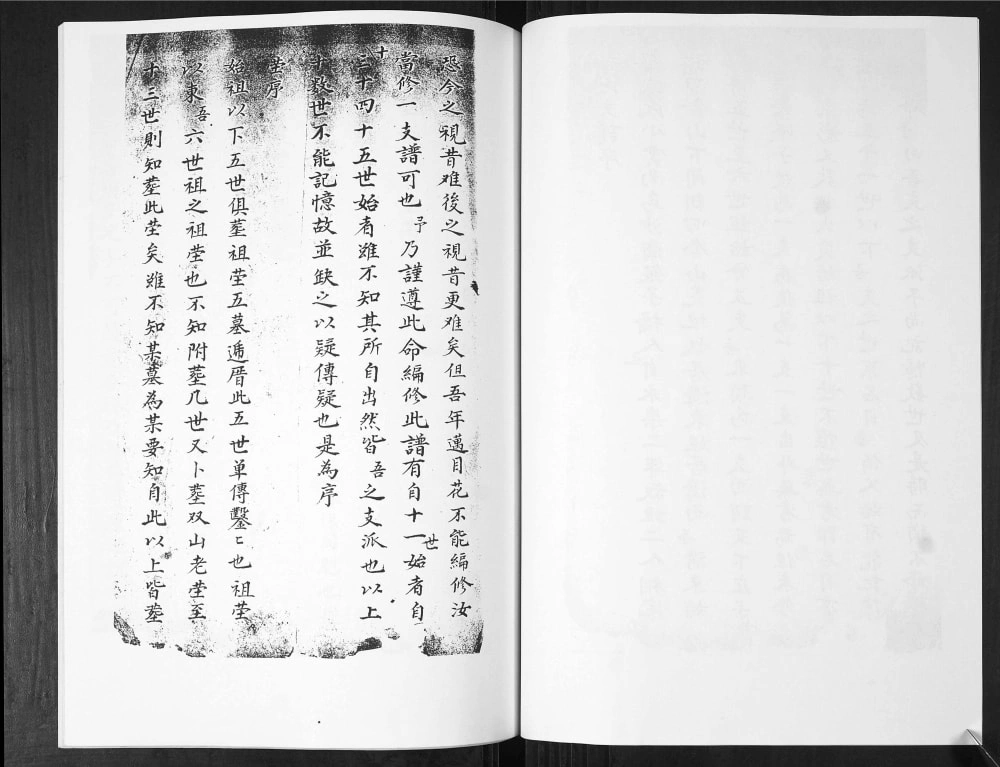 恐今之視昔难後之視昔更难矣但吾年邁目花不能編修汝
當修一支譜可也予乃謹遵此命編修此譜有自十一世始者自
十三十四十五世始者雖不知其所自出然皆吾之支派也以上
十数世不能記憶故並缺之以疑傳疑也是為序
塋序
始祖以下五世俱塟祖塋五墓遞厝此五世单傳鑿〻也祖塋
以東吾六世祖之祖塋也不知附塟几世又卜塟双山老塋至
十三世則知塟此塋矣雖不知某墓為某要知自此以上皆塟